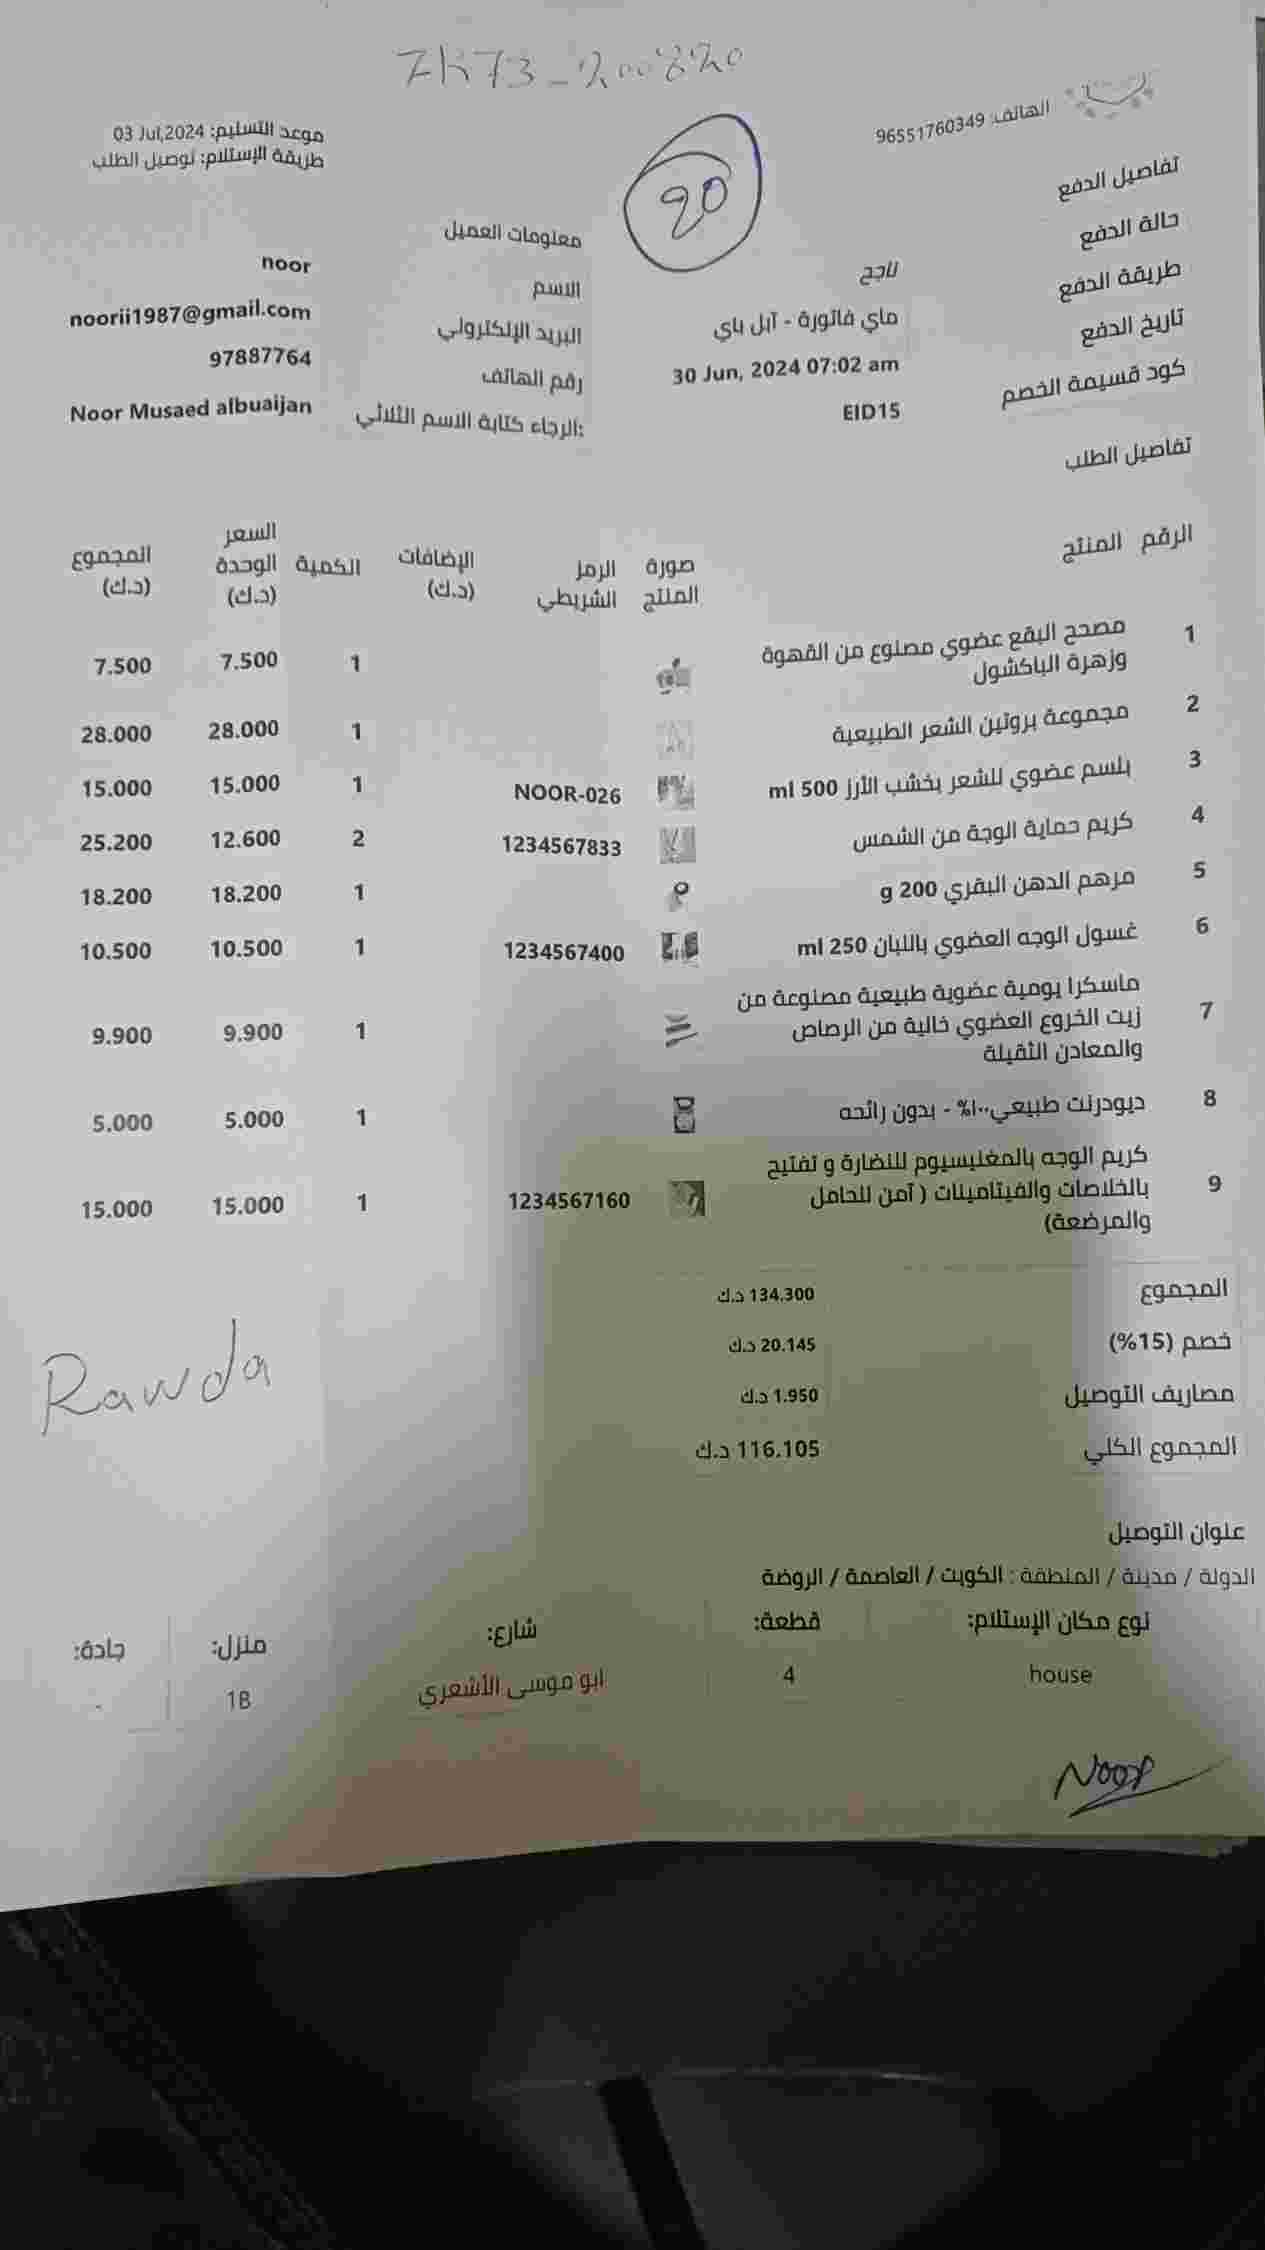 ZK73-200820
الهاتف: 96551760349
موعد التسليم: 03 Jul,2024
طريقة الإستلام: توصيل الطلب
20
تفاصيل الدفع
حالة الدفع ناجح
طريقة الدفع ماي فاتورة - آبل باي
تاريخ الدفع 30 Jun, 2024 07:02 am
كود قسيمة الخصم EID15
معلومات العميل
الاسم noor
البريد الإلكتروني noorii1987@gmail.com
رقم الهاتف 97887764
الرجاء كتابة الاسم الثلاثي: Noor Musaed albuaijan
تفاصيل الطلب
الرقم المنتج صورة المنتج الرمز الشريطي الإضافات (د.ك) الكمية السعر الوحدة (د.ك) المجموع (د.ك)
1 مصحح البقع عضوي مصنوع من القهوة وزهرة الباكشول 1 7.500 7.500
2 مجموعة بروتين الشعر الطبيعية 1 28.000 28.000
3 بلسم عضوي للشعر بخشب الأرز 500 ml NOOR-026 1 15.000 15.000
4 كريم حماية الوجة من الشمس 1234567833 2 12.600 25.200
5 مرهم الدهن البقري 200 g 1 18.200 18.200
6 غسول الوجه العضوي باللبان 250 ml 1234567400 1 10.500 10.500
7 ماسكرا يومية عضوية طبيعية مصنوعة من زيت الخروع العضوي خالية من الرصاص والمعادن الثقيلة 1 9.900 9.900
8 ديودرنت طبيعي١٠٠% - بدون رائحه 1 5.000 5.000
9 كريم الوجه بالمغنيسيوم للنضارة و تفتيح بالخلاصات والفيتامينات ( آمن للحامل والمرضعة) 1234567160 1 15.000 15.000
المجموع 134.300 د.ك
خصم (15%) 20.145 د.ك
مصاريف التوصيل 1.950 د.ك
المجموع الكلي 116.105 د.ك
Rawda
عنوان التوصيل
الدولة / مدينة / المنطقة : الكويت / العاصمة / الروضة
نوع مكان الإستلام: قطعة: شارع: منزل: جادة:
house 4 ابو موسى الأشعري 18 -
Noor